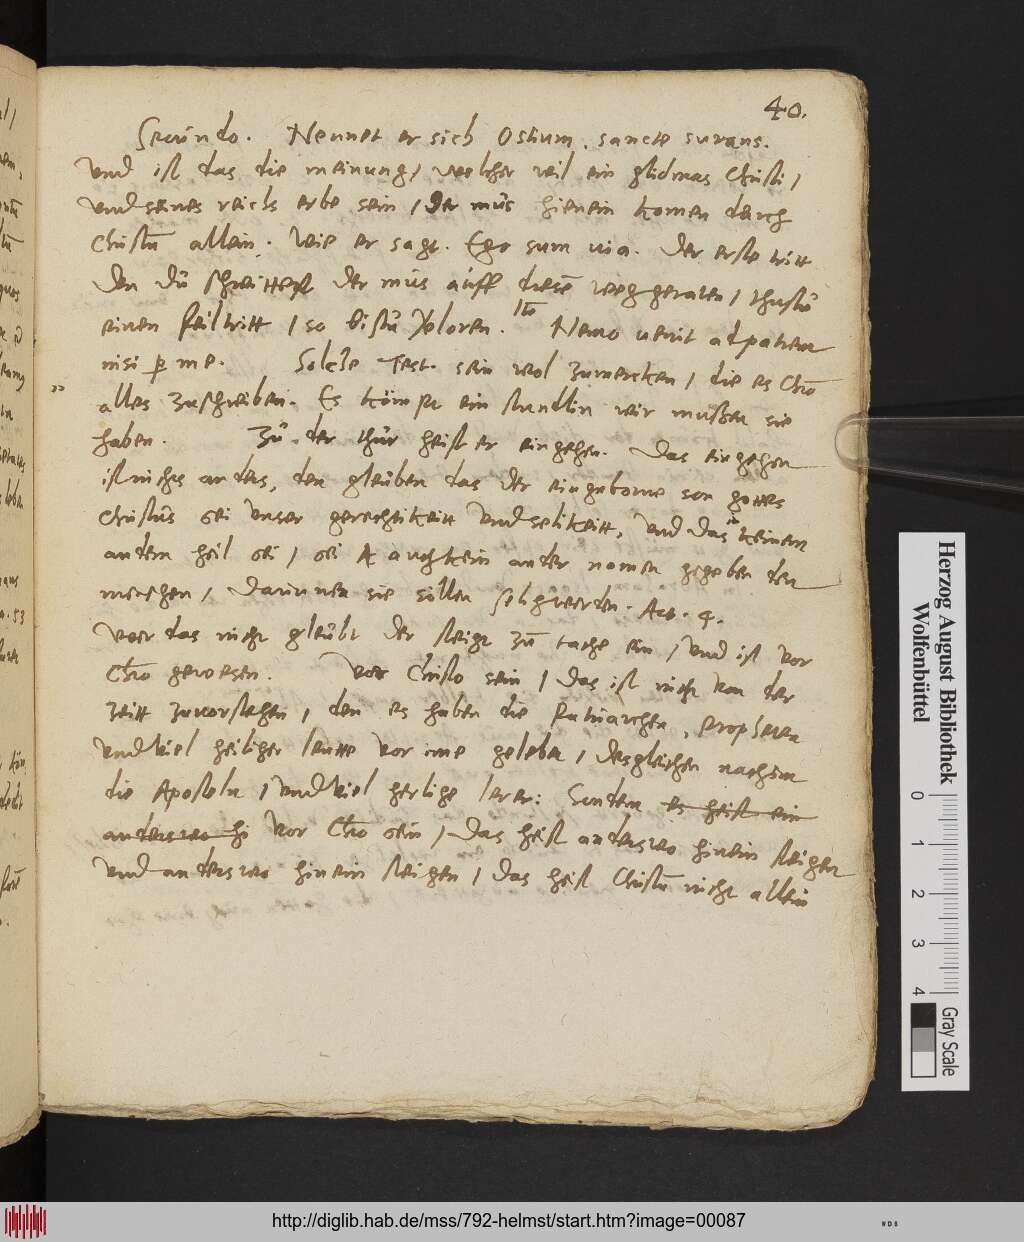 40.
Secundo. Nennet er sich Ostium, sancte iurans.
Und ist das die meinung, welcher wil ein glidmas Christi,
und seines reichs erbe sein, der mus hienein komen durch
Christū allein. Wie er sagt. Ego sum via. Der erste tritt
den du schreittest der mus auff diesē weg geraten, thustu
einen feiltritt, so bistu verloren. Itē Nemo venit ad patrem
nisi ꝑ me. Solche Test. sein wol zumercken, die es Chro
alles zuschreiben. Es kömpt ein stundlin wir mußen sie
haben. Zu der thur heist er eingehen. Das eingehen
ist nichts anders, den gleuben das der eingeborne son gottes
Christus sei unser gerechtikeitt und selikeitt, und das in keinem
andern heil sei, sei auch kein ander namen gegeben den
menschen, darinnen sie sollen selig werden. Act. 4.
Wer das nicht gleubt der steigt zum tache ein, und ist vor
Chro gewesen. Vor Christo sein, das ist nicht von der
zeitt zuvorstehen, den es haben die Patriarchen, Propheten
und viel heiliger leutte vor ime gelebet, desgleichen nach im
die Aposteln, und viel herlige lerer: Sondern es heist ein
anderswo hi vor Chro sein, das heist anderswo hinein steigen
und anderswo hinein steigen, das heist Christū nicht allein
Herzog August Bibliothek
Wolfenbüttel
0 1 2 3 4
Gray Scale
http://diglib.hab.de/mss/792-helmst/start.htm?image=00087